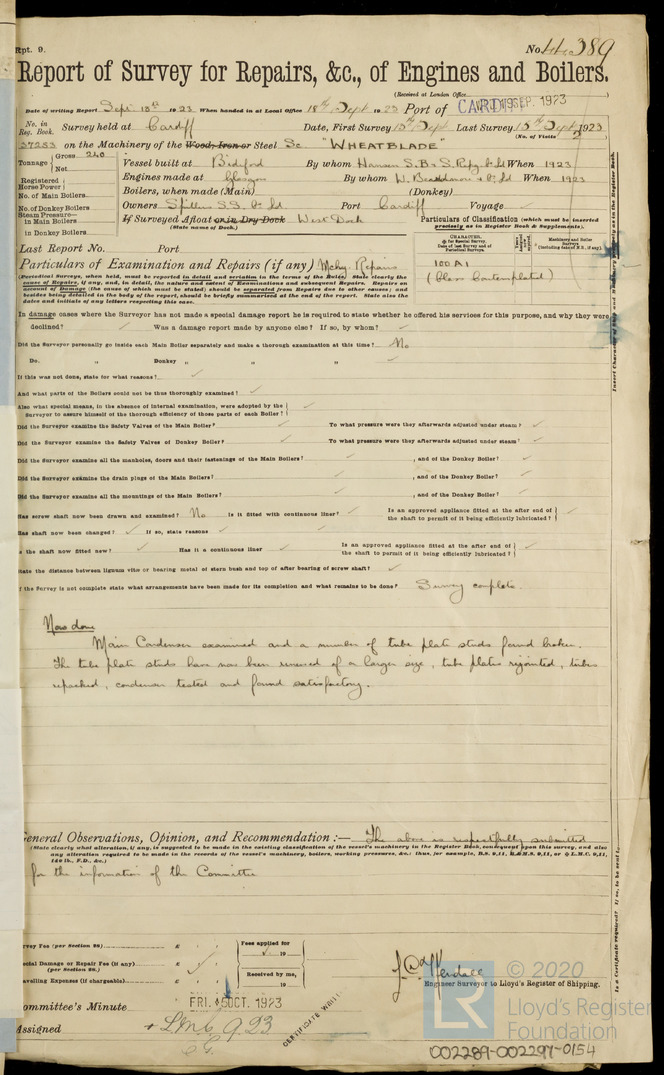 Rpt. 9.
No. 44389
Report of Survey for Repairs, &c., of Engines and Boilers.
(Received at London Office
Date of writing Report Sept 18th 1923 When handed in at Local Office 18th Sept 1923 Port of CARDIFF SEP. 1923
No. in Reg. Book. Survey held at Cardiff Date, First Survey 15th Sept Last Survey, 15th Sept 1923
(No. of Visits
37283 on the Machinery of the Wood, Iron or Steel Sc. "WHEATBLADE"
Tonnage Gross 240
Net
Vessel built at Bideford By whom Hansen S.B. & S. Repg Co Ld When 1923
Registered Horse Power
Engines made at Glasgow By whom W. Beardmore & Co Ld When 1923
No. of Main Boilers
Boilers, when made (Main) (Donkey)
No. of Donkey Boilers
Owners Spillers S.S. Co Ld. Port Cardiff Voyage
Steam Pressure—
in Main Boilers
If Surveyed Afloat or in Dry Dock West Dock
(State name of Dock.)
in Donkey Boilers
Particulars of Classification (which must be inserted precisely as in Register Book & Supplements).
Last Report No. Port
Particulars of Examination and Repairs (if any) Mchy. Repairs
100 A1
(Class Contemplated)
(Periodical Surveys, when held, must be reported in detail and seriatim in the terms of the Rules. State clearly the
cause of Repairs, if any, and, in detail, the nature and extent of Examinations and subsequent Repairs. Repairs on
account of Damage (the cause of which must be stated) should be separated from Repairs due to other causes; and
besides being detailed in the body of the report, should be briefly summarised at the end of the report. State also the
dates and initials of any letters respecting this case.
In damage cases where the Surveyor has not made a special damage report he is required to state whether he offered his services for this purpose, and why they were
declined? Was a damage report made by anyone else? If so, by whom?
Did the Surveyor personally go inside each Main Boiler separately and make a thorough examination at this time? No
Do. " Donkey " " "
If this was not done, state for what reasons?
And what parts of the Boilers could not be thus thoroughly examined?
Also what special means, in the absence of internal examination, were adopted by the
Surveyor to assure himself of the thorough efficiency of those parts of each Boiler?
Did the Surveyor examine the Safety Valves of the Main Boiler? To what pressure were they afterwards adjusted under steam?
Did the Surveyor examine the Safety Valves of Donkey Boiler? To what pressure were they afterwards adjusted under steam?
Did the Surveyor examine all the manholes, doors and their fastenings of the Main Boilers? , and of the Donkey Boiler?
Did the Surveyor examine the drain plugs of the Main Boilers? , and of the Donkey Boiler?
Did the Surveyor examine all the mountings of the Main Boilers? , and of the Donkey Boiler?
Has screw shaft now been drawn and examined? No Is it fitted with continuous liner? Is an approved appliance fitted at the after end of the shaft to permit of it being efficiently lubricated?
Has shaft now been changed? If so, state reasons
Is the shaft now fitted new? Has it a continuous liner Is an approved appliance fitted at the after end of the shaft to permit of it being efficiently lubricated?
State the distance between lignum vitæ or bearing metal of stern bush and top of after bearing of screw shaft?
If the Survey is not complete state what arrangements have been made for its completion and what remains to be done? Survey complete.
Now done
Main Condenser examined and a number of tube plate studs found broken.
The tube plate studs have now been renewed of a larger size, tube plates rejointed, tubes
repacked, condenser tested and found satisfactory.
General Observations, Opinion, and Recommendation :— The above is respectfully submitted
(State clearly what alteration, if any, is suggested to be made in the existing classification of the vessel's machinery in the Register Book, consequent upon this survey, and also
any alteration required to be made in the records of the vessel's machinery, boilers, working pressures, &c.: thus, for example, B.S. 9,11,
for the information of the Committee
Survey Fee (per Section 28) £
Special Damage or Repair Fee (if any) £
(per Section 28.)
Travelling Expenses (if chargeable) £
Fees applied for
19
Received by me,
19
Engineer Surveyor to Lloyd's Register of Shipping.
Committee's Minute FRI. 5 OCT. 1923
Assigned + LMC 9.23
CERTIFICATE WRITTEN
Is a Certificate required? If so, to be sent
© 2020
LR
Lloyd's Register
Foundation
002289-002297-0154